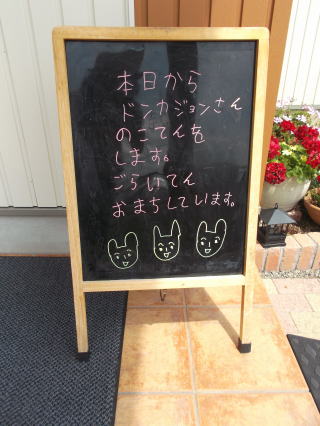 本日から
ドンカジョンさん
のこてんを
します。
ごらいてん
おまちしています。